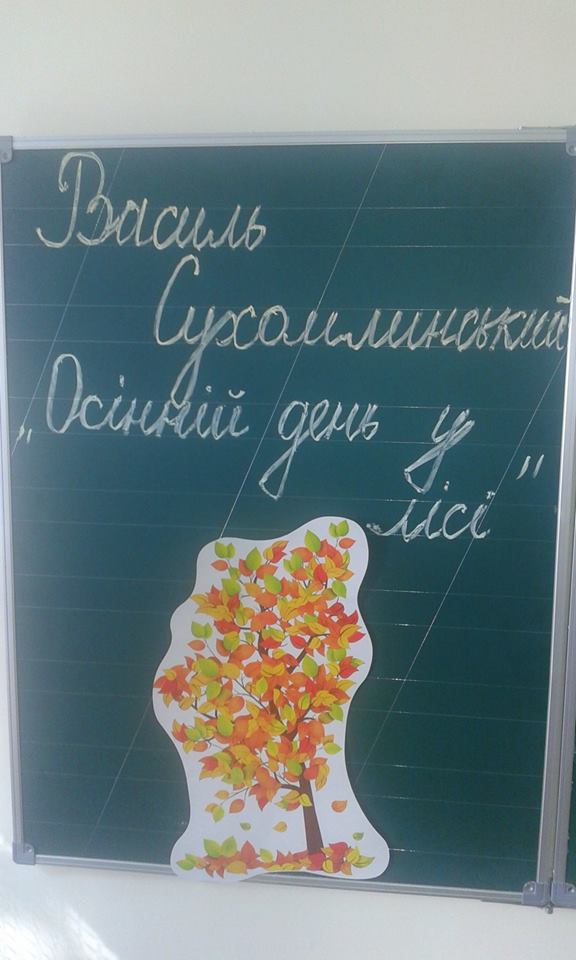 Василь
Сухомлинський
„Осінній день у
лісі"